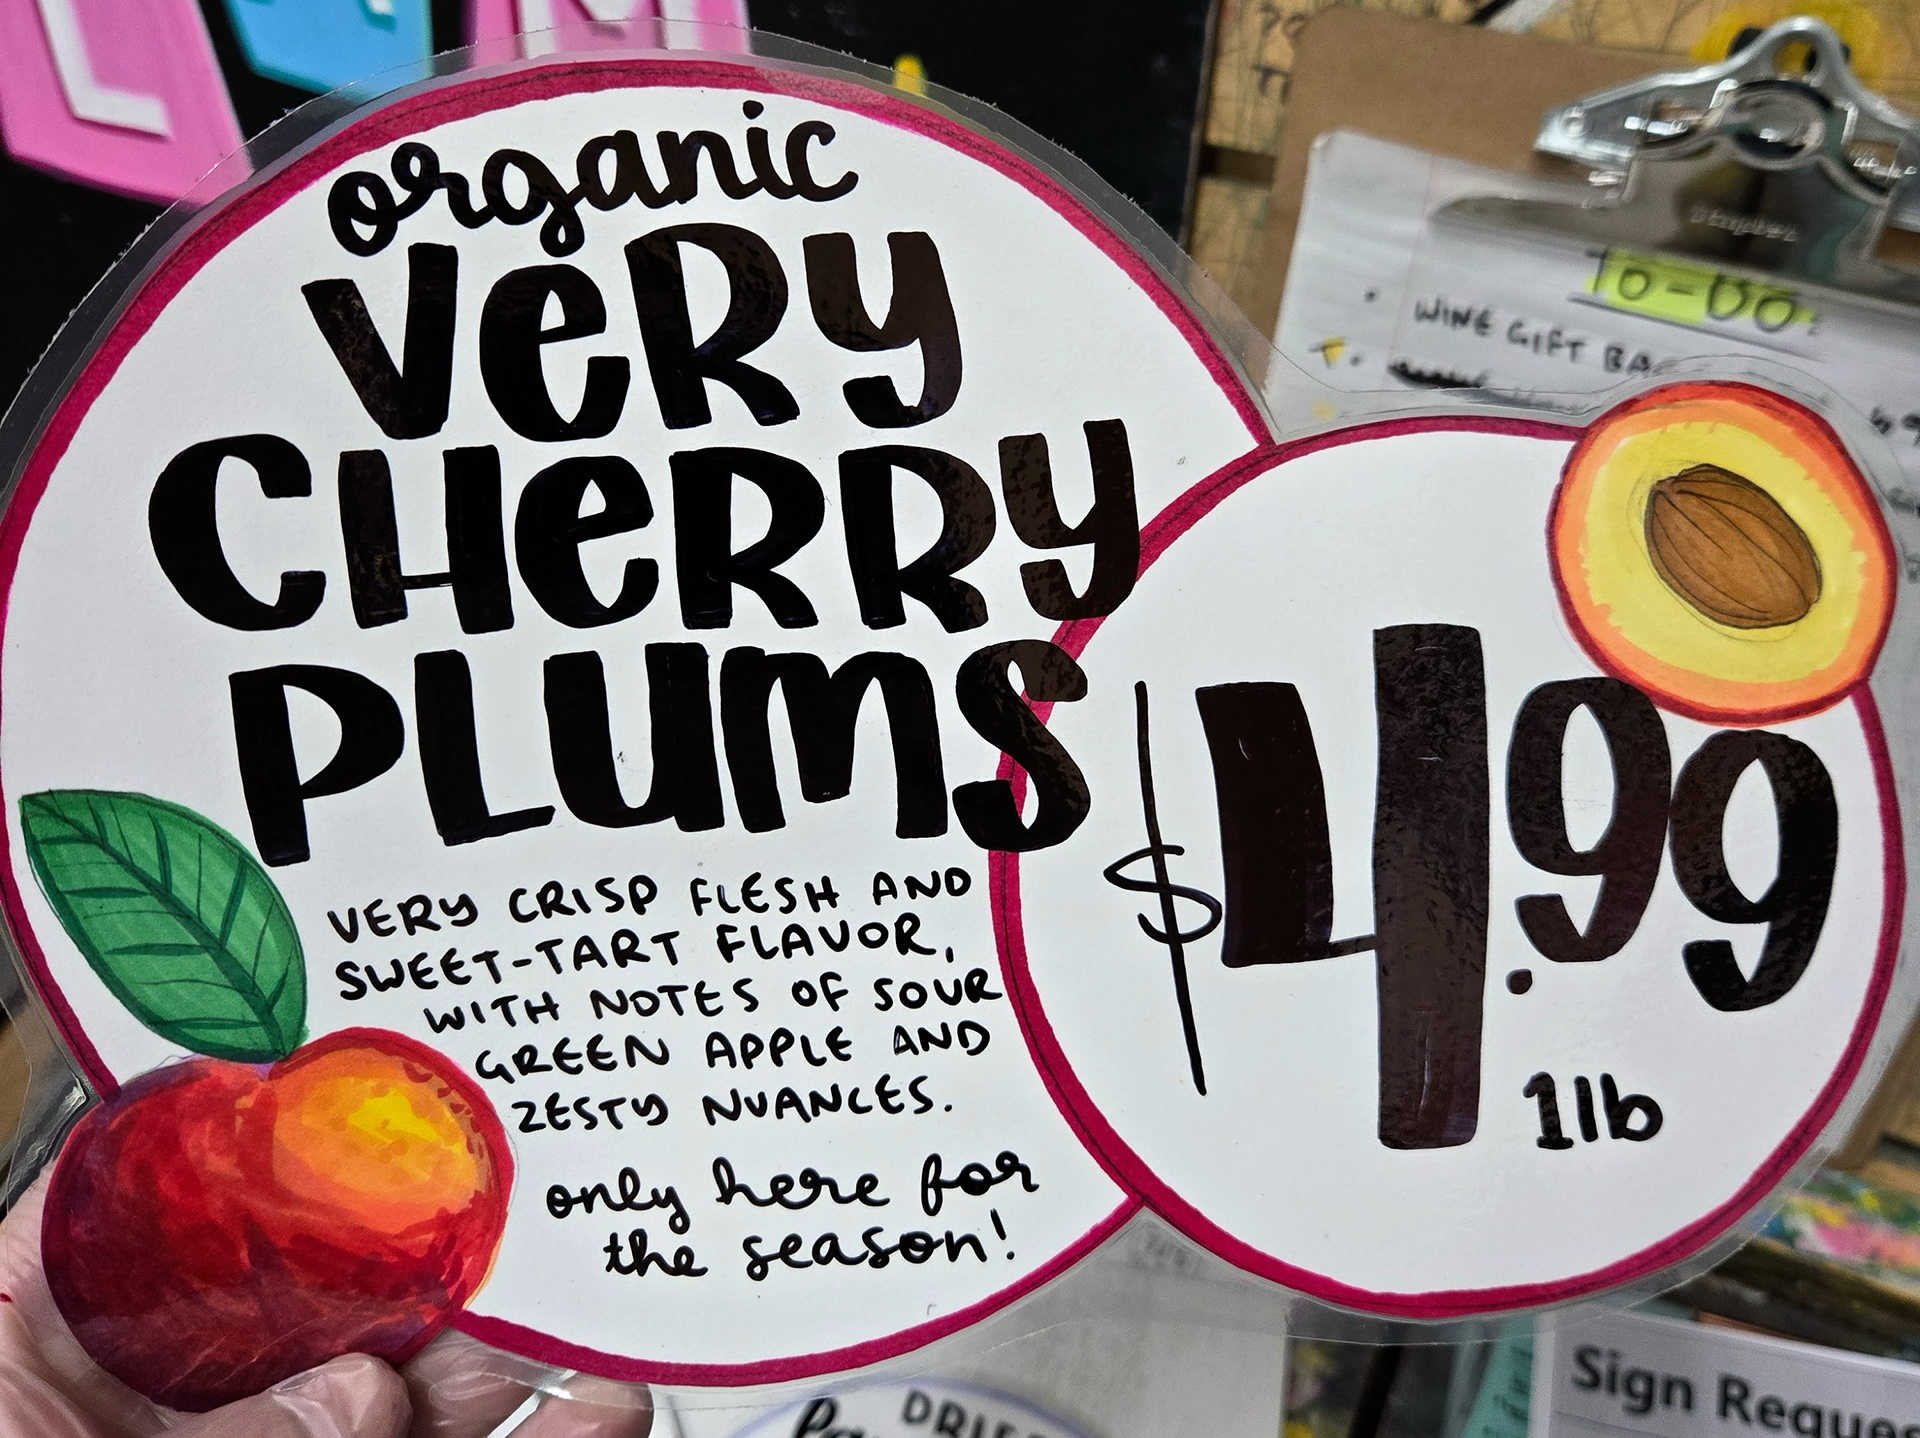 L
M
organic
VeRY
CHeRRY
PLUMS
VERY CRISP FLESH AND
SWEET-TART FLAVOR,
WITH NOTES OF SOUR
GREEN APPLE AND
ZESTY NUANCES.
only here for
the season!
$4.99
1lb
TO-DO:
WINE GIFT
Sign